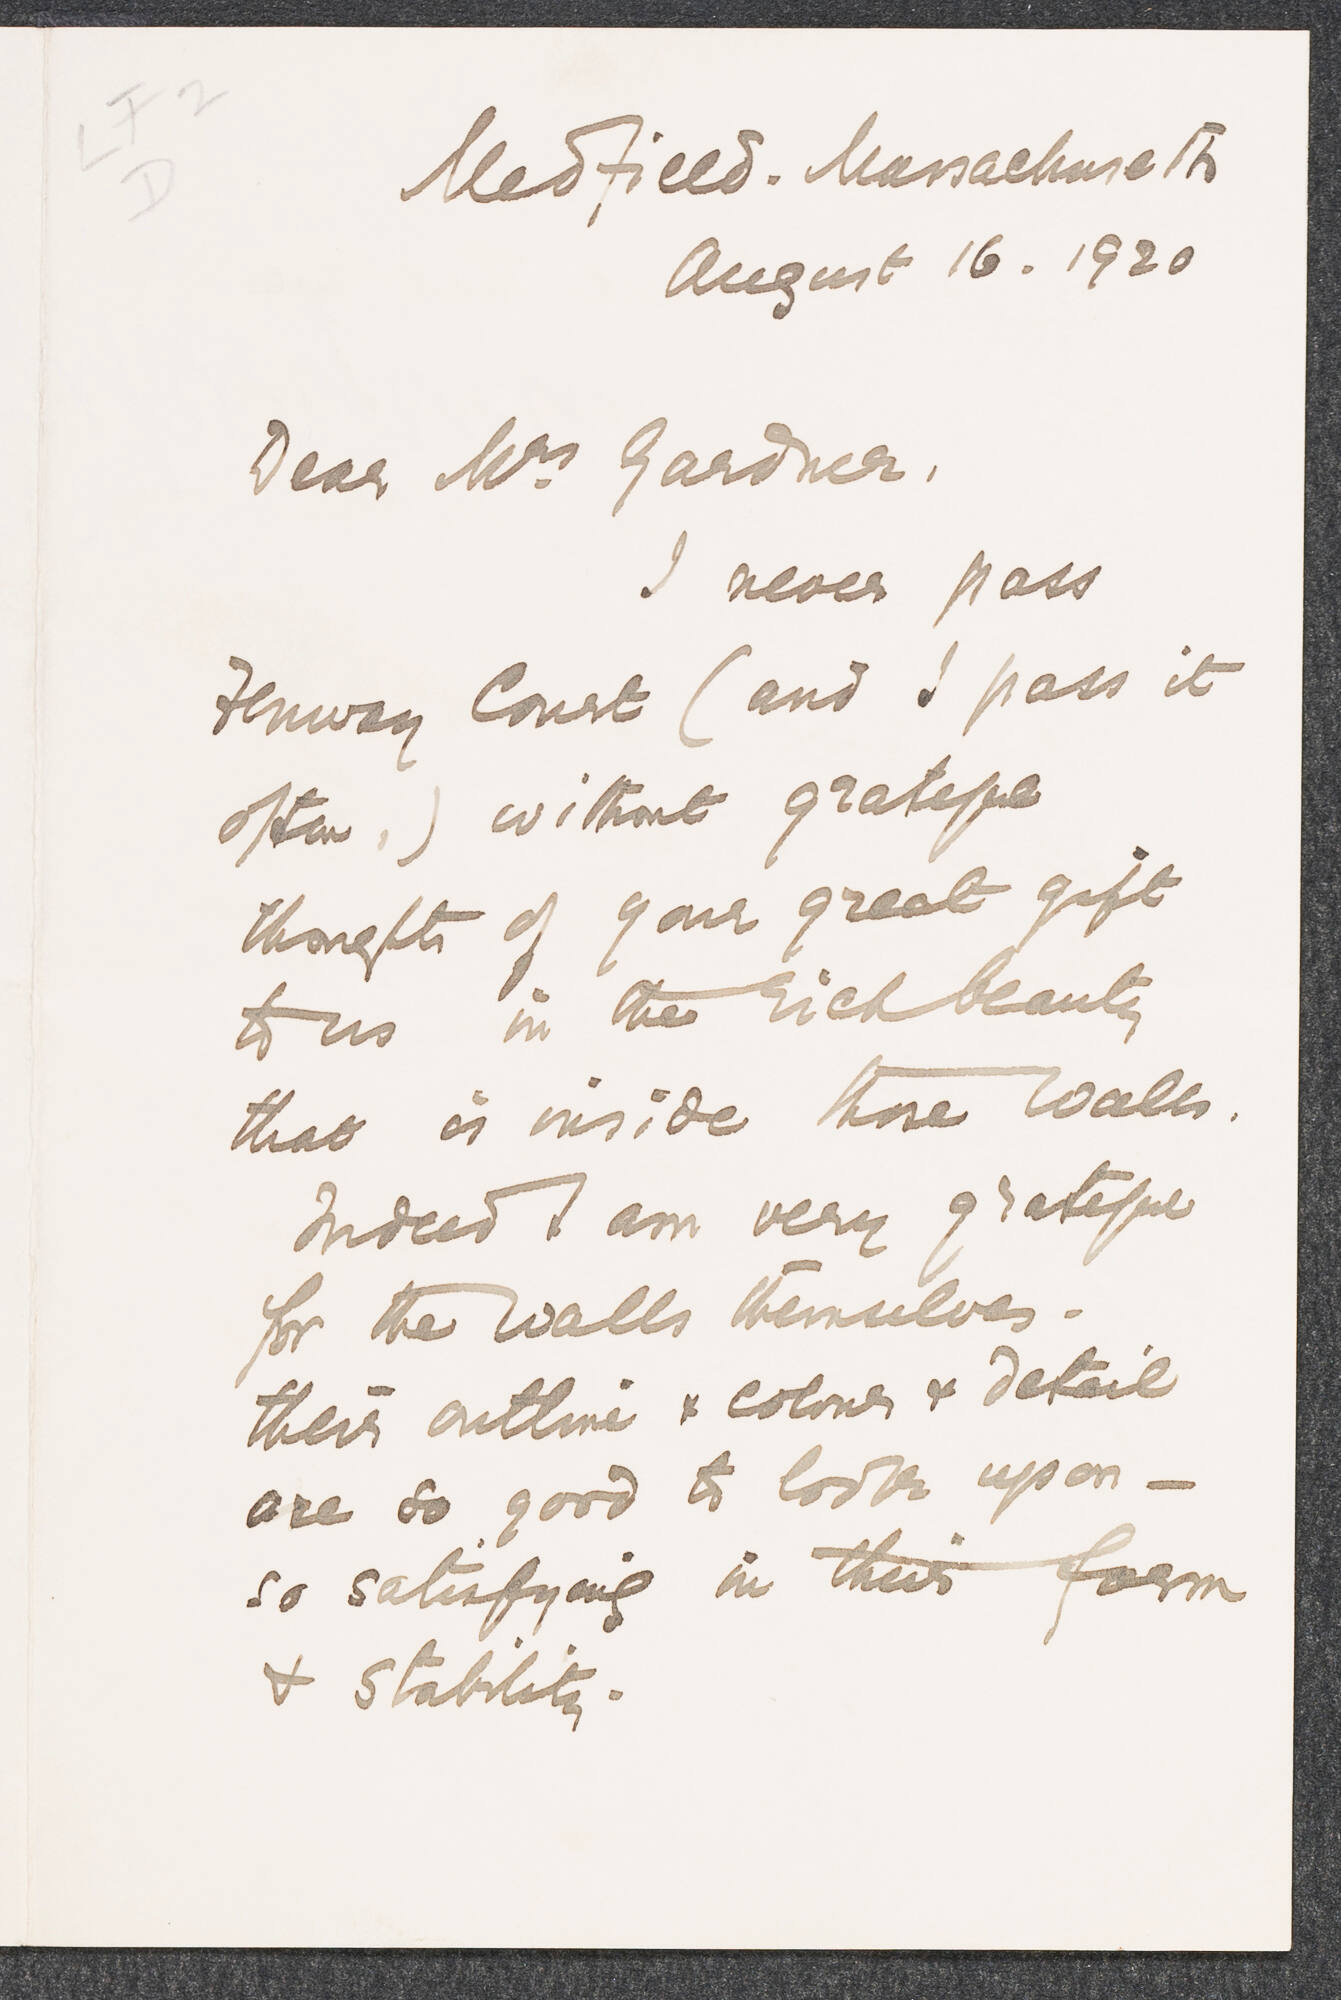 LF2
D
Medfield. Massachusetts
August 16. 1920
Dear Mrs Gardner,
I never pass
Fenway Court (and I pass it
often,) without grateful
thoughts of your great gift
to us in the rich beauty
that is inside those walls.
Indeed I am very grateful
for the walls themselves.
their outline & colour & detail
are so good to look upon —
so satisfying in their form
& stability.